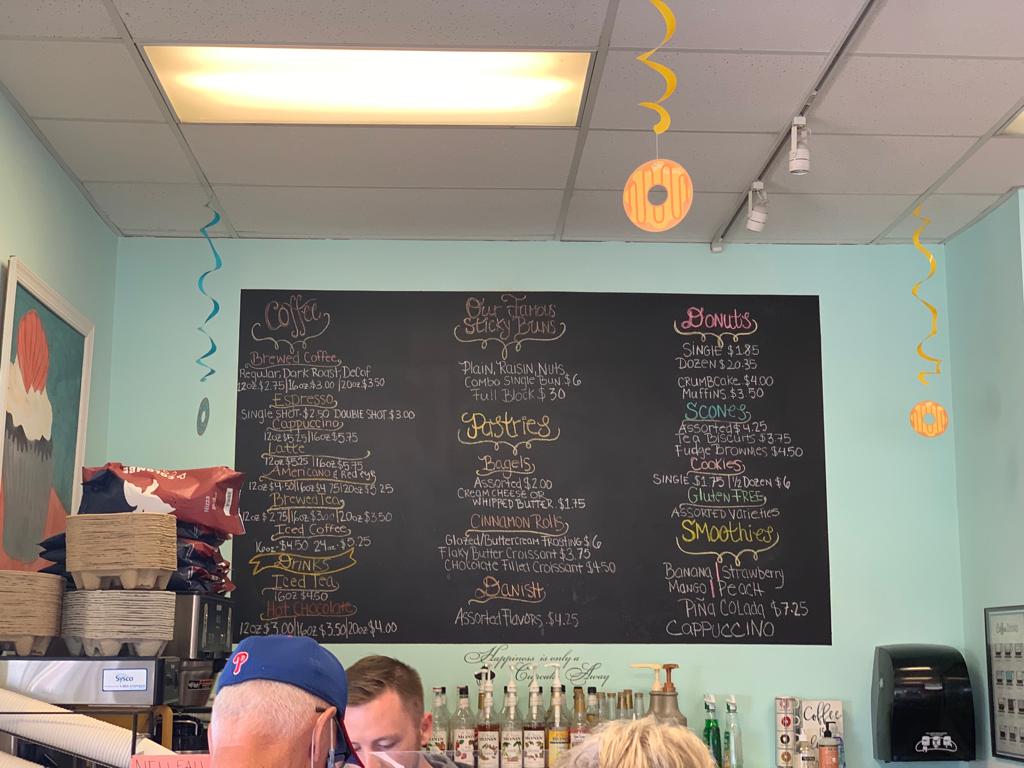 Coffee
Brewed Coffee
Regular, Dark Roast, Decaf
12oz $2.75 | 16oz $3.00 | 20oz $3.50
Espresso
Single Shot $2.50 Double Shot $3.00
Cappuccino
12oz $5.25 | 16oz $5.75
Latte
12oz $5.25 | 16oz $5.75
Americano & Redeye
12oz $4.50 | 16oz $4.75 | 20oz 5.25
Brewed Tea
12oz $2.75 | 16oz $3.00 | 20oz $3.50
Iced Coffee
16oz $4.50 24oz $5.25
Drinks
Iced Tea
16oz $4.50
Hot Chocolate
12oz $3.00 | 16oz $3.50 | 20oz $4.00
Our Famous
Sticky Buns
Plain, Raisin, Nuts
Combo Single Bun $6
Full Block $30
Pastries
Bagels
Assorted $2.00
Cream Cheese or
Whipped Butter $1.75
Cinnamon Rolls
Glazed/Buttercream Frosting $6
Flaky Butter Croissant $3.75
Chocolate Filled Croissant $4.50
Danish
Assorted Flavors $4.25
Donuts
Single $1.85
Dozen $20.35
Crumbcake $4.00
Muffins $3.50
Scones
Assorted $4.25
Tea Biscuits $3.75
Fudge Brownies $4.50
Cookies
Single $1.75 | 1/2 Dozen $6
Gluten Free
Assorted Varieties
Smoothies
Banana | Strawberry
Mango | Peach
Pina Colada $7.25
Cappuccino
Happiness is only a
Cupcake Away
Sysco
P
MONIN
MONIN
MONIN
MONIN
MONIN
Coffee